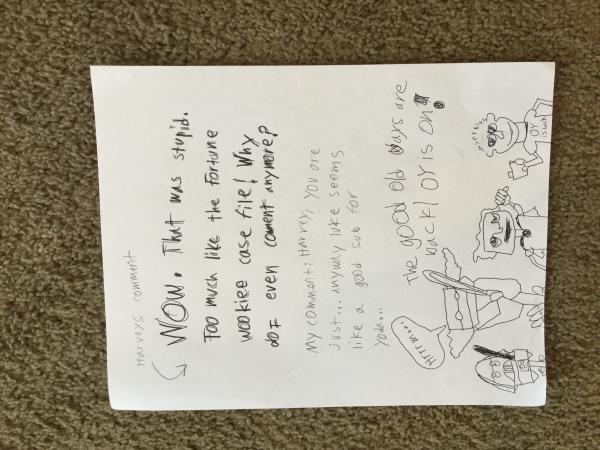 Harveys comment
WOW. That was stupid.
Too much like the Fortune
wookiee case file! Why
do I even coment anymore?
My comment: Harvey, you are
just... anyway luke seems
like a good sub for
Yoda...
The good old days are
back! Or is on!